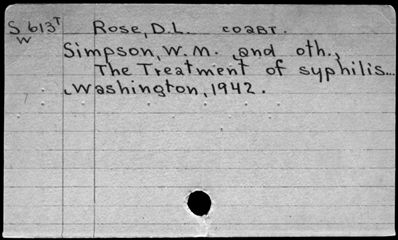 S 613T Rose, D.L. coавт.
W
Simpson, W.M. and oth.,
The Treatment of syphilis...
Washington, 1942.